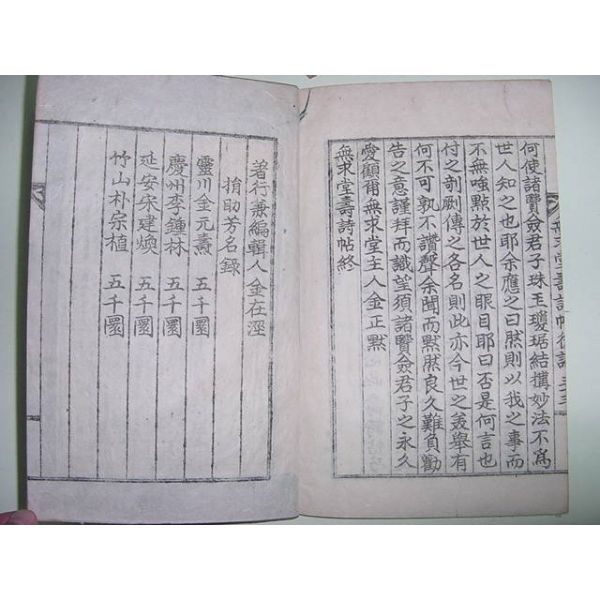 何使諸賢僉君子珠玉瓊琚結搆妙法不爲
世人知之也耶余應之曰然則以我之事而
不無唾點於世人之眼目耶曰否是何言也
付之剞劂傳之各名則此亦今世之美擧有
何不可孰不讚聲余聞而默然良久難負勸
告之意謹拜而識望須諸賢僉君子之永久
愛顧爾無求堂主人金正默
無求堂壽詩帖終
著行兼編輯人金在涇
捐助芳名錄
靈川金元熹 五千圜
慶州李鍾林 五千圜
延安宋建煥 五千圜
竹山朴宗植 五千圜